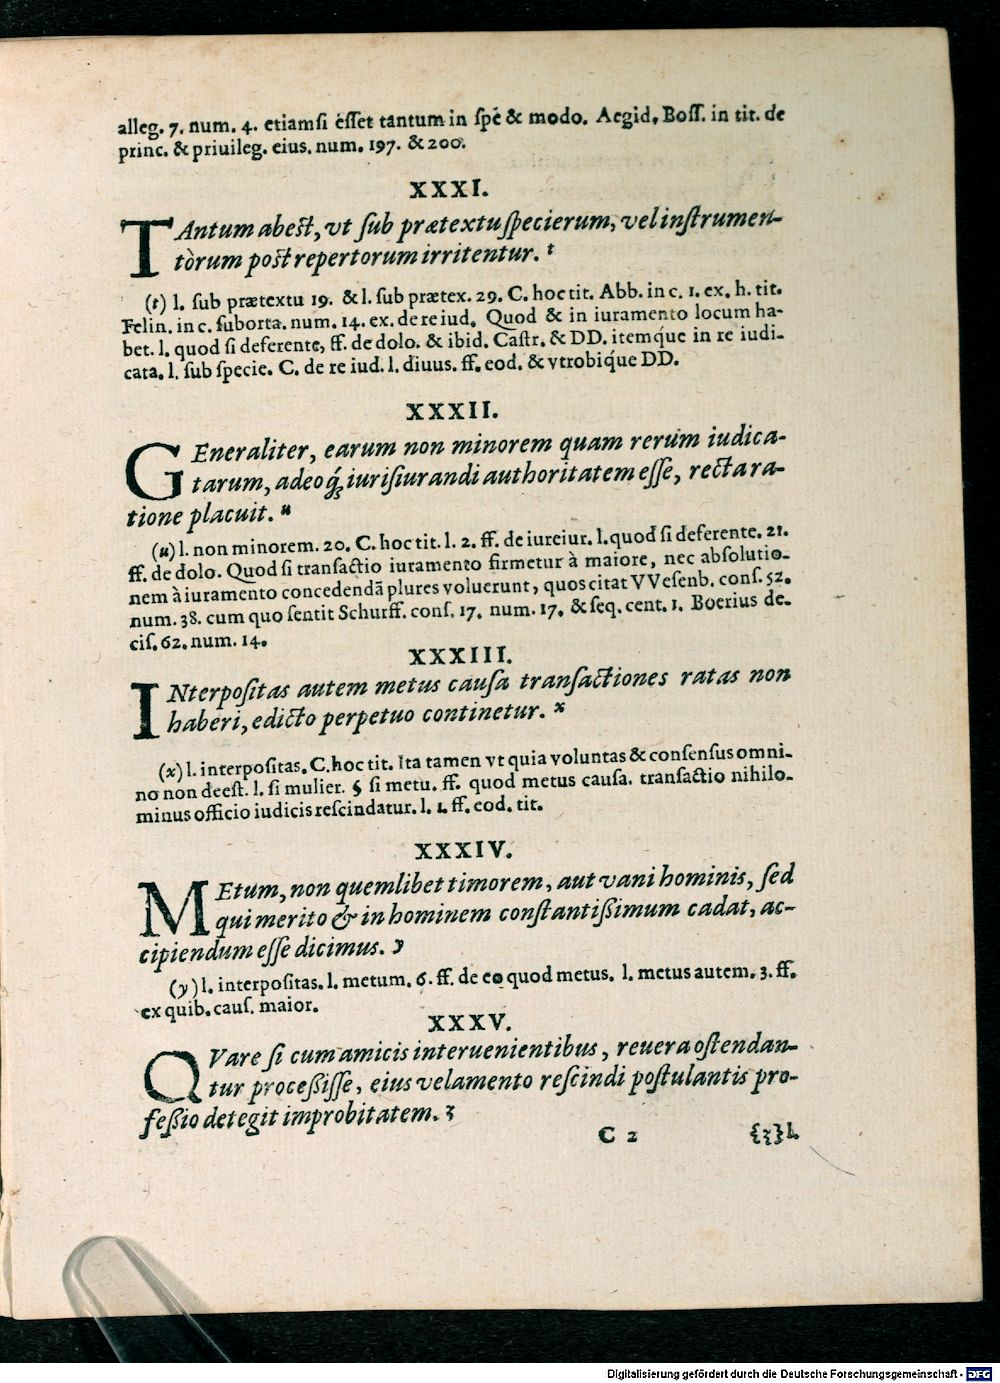 alleg. 7. num. 4. etiamsi ésset tantum in spé & modo. Aegid. Boss. in tit. de
princ. & priuileg. eius. num. 197. & 200.
XXXI.
TAntum abest, vt sub prætextu specierum, vel instrumen-
tòrum post repertorum irritentur. t
(t) l. sub prætextu 19. & l. sub prætex. 29. C. hoc tit. Abb. in c. 1. ex. h. tit.
Felin. in c. suborta. num. 14. ex. de re iud. Quod & in iuramento locum ha-
bet. l. quod si deferente, ff. de dolo. & ibid. Castr. & DD. itemq́ue in re iudi-
cata. l. sub specie. C. de re iud. l. diuus. ff. eod. & vtrobiq́ue DD.
XXXII.
GEneraliter, earum non minorem quam rerum iudica-
tarum, adeoq́; iurisiurandi authoritatem esse, recta ra-
tione placuit. u
(u) l. non minorem. 20. C. hoc tit. l. 2. ff. de iureiur. l. quod si deferente. 21.
ff. de dolo. Quod si transactio iuramento firmetur à maiore, nec absolutio-
nem à iuramento concedendã plures voluerunt, quos citat VVesenb. cons. 52.
num. 38. cum quo sentit Schurff. cons. 17. num. 17. & seq. cent. 1. Boerius de-
cis. 62. num. 14.
XXXIII.
INterpositas autem metus causa transactiones ratas non
haberi, edicto perpetuo continetur. x
(x) l. interpositas. C. hoc tit. Ita tamen vt quia voluntas & consensus omni-
no non deest. l. si mulier. § si metu. ff. quod metus causa. transactio nihilo-
minus officio iudicis rescindatur. l. 1. ff. eod. tit.
XXXIV.
MEtum, non quemlibet timorem, aut vani hominis, sed
qui merito & in hominem constantissimum cadat, ac-
cipiendum esse dicimus. y
(y) l. interpositas. l. metum. 6. ff. de eo quod metus. l. metus autem. 3. ff.
ex quib. caus. maior.
XXXV.
QVare si cum amicis interuenientibus, reuera ostendan-
tur processisse, eius velamento rescindi postulantis pro-
fessio detegit improbitatem. z
C 2 {z} l.
Digitalisierung gefördert durch die Deutsche Forschungsgemeinschaft - DFG